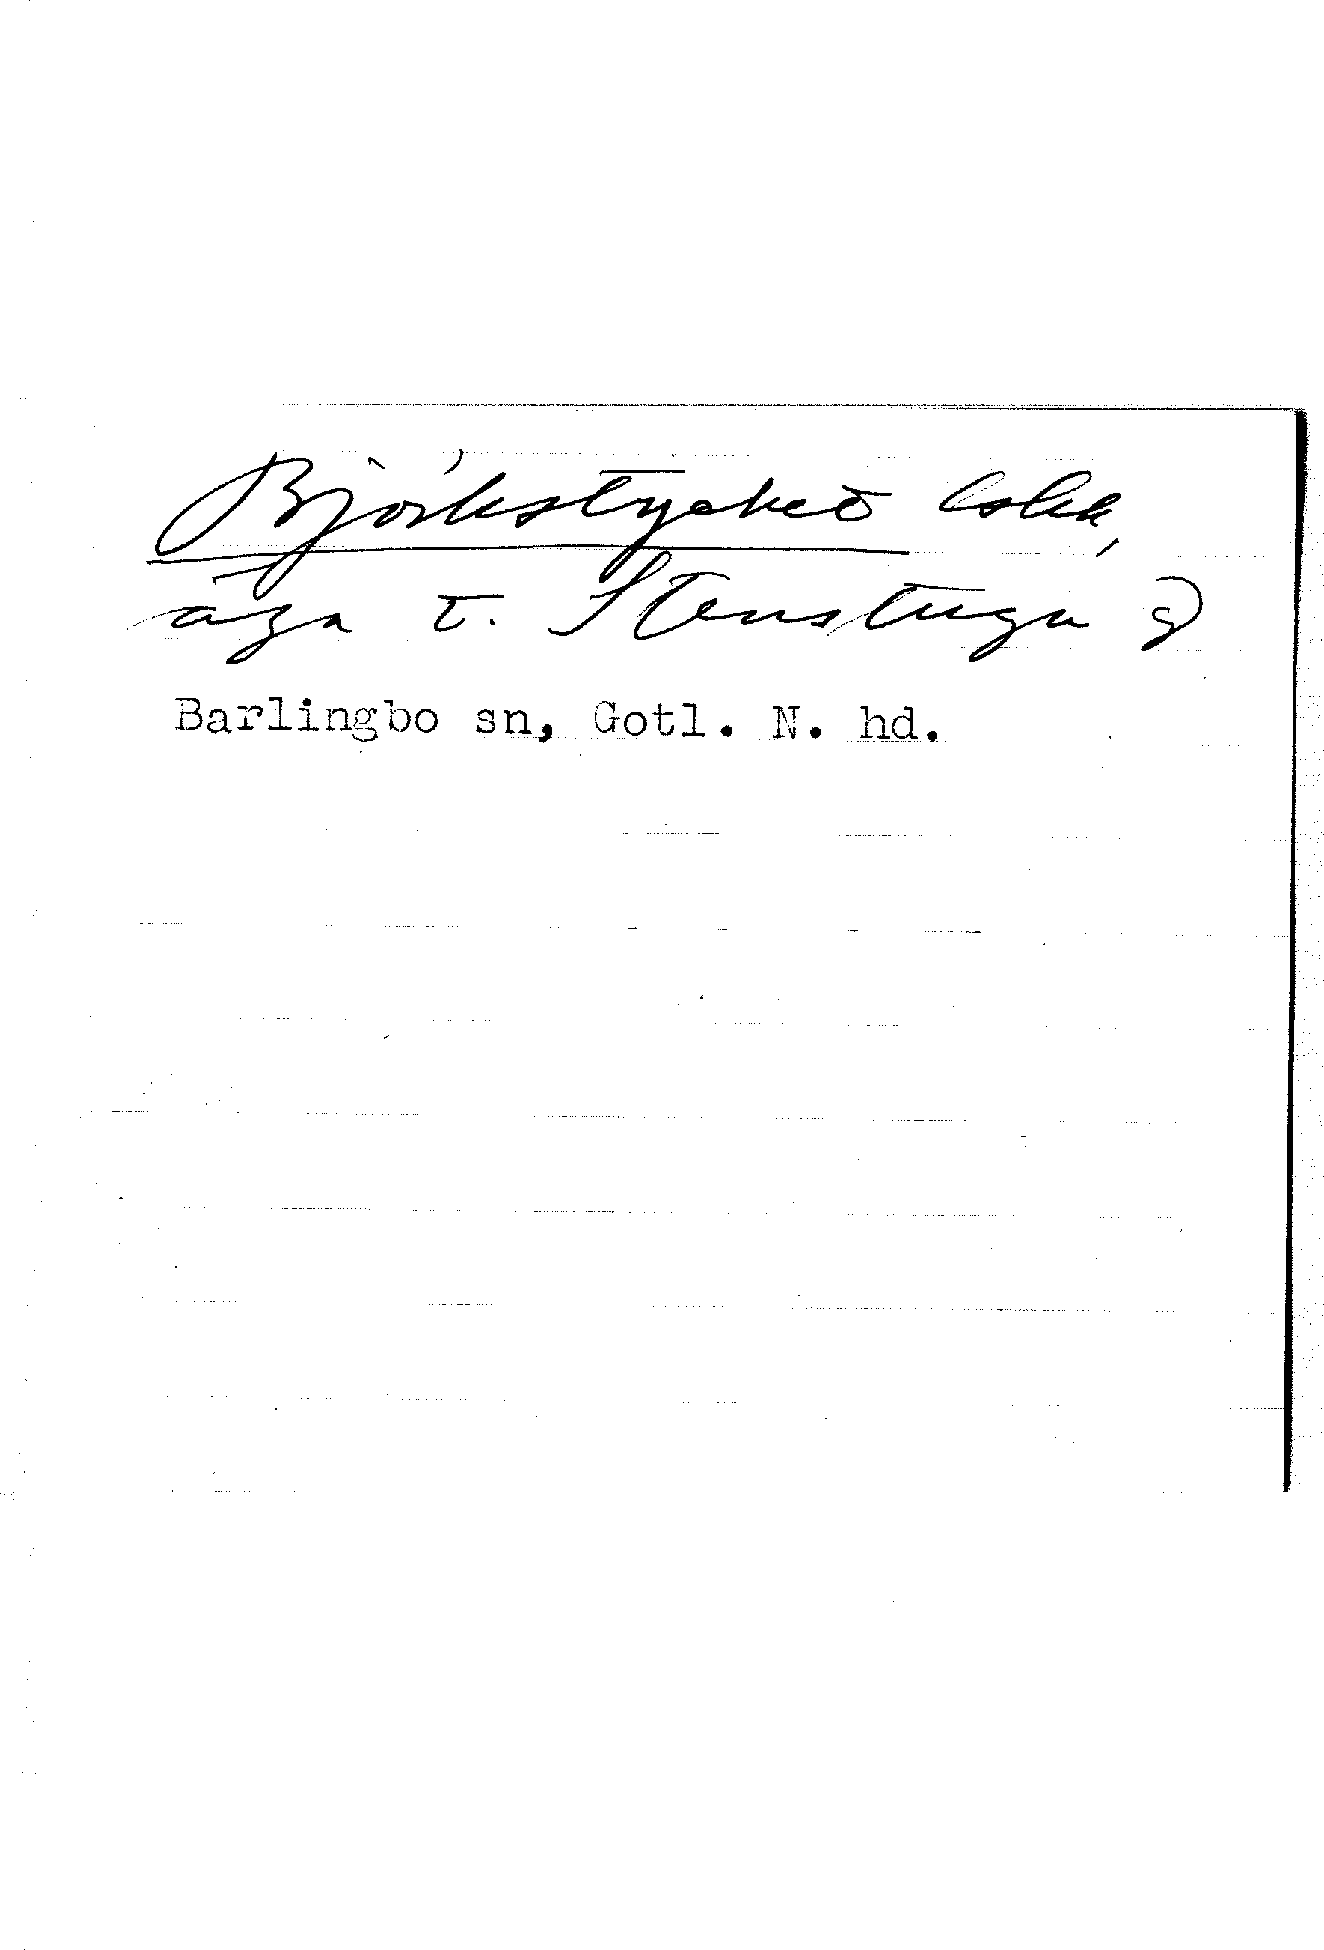 Björkstycket
äga t. Stenstugu g
Barlingbo sn, Gotl. N. hd.